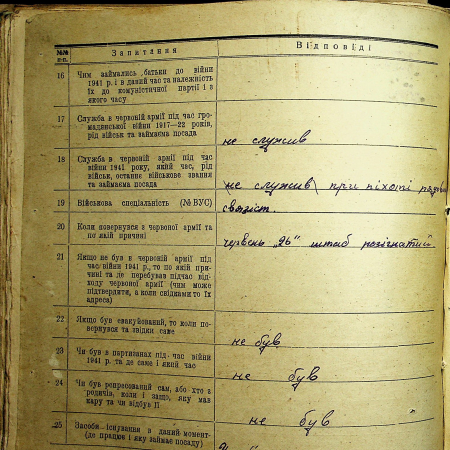 №№ п-п.
Запитання
Відповіді
16 Чим займались батьки до війни
1941 р. і в даний час та належність
їх до комуністичної партії і з
якого часу
17 Служба в червоній армії під час гро-
мадянської війни 1917—22 років,
рід військ та займаєма посада
не служив
18 Служба в червоній армії під час
війни 1941 року, який час, рід
військ, останнє військове звання
та займаєма посада
не служив при піхоті
19 Військова спеціяльність (№ ВУС)
связіст.
20 Коли повернувся з червоної армії та
по якій причині
червень „26" штаб розігнатий
21 Якщо не був в червоній армії під
час війни 1941 р., то по якій при-
чині та де перебував підчас від-
ходу червоної армії (чим може
підтвердити, а коли свідками то їх
адреса)
22 Якщо був евакуйований, то коли по-
вернувся та звідки саме
не був
23 Чи був в партизанах під час війни
1941 р. та де саме і який час
не був
24 Чи був репресований сам, або хто з
родичів, коли і защо, яку мав
кару та чи відбув її
не був
25 Засоби існування в даний момент
(де працює і яку займає посаду)